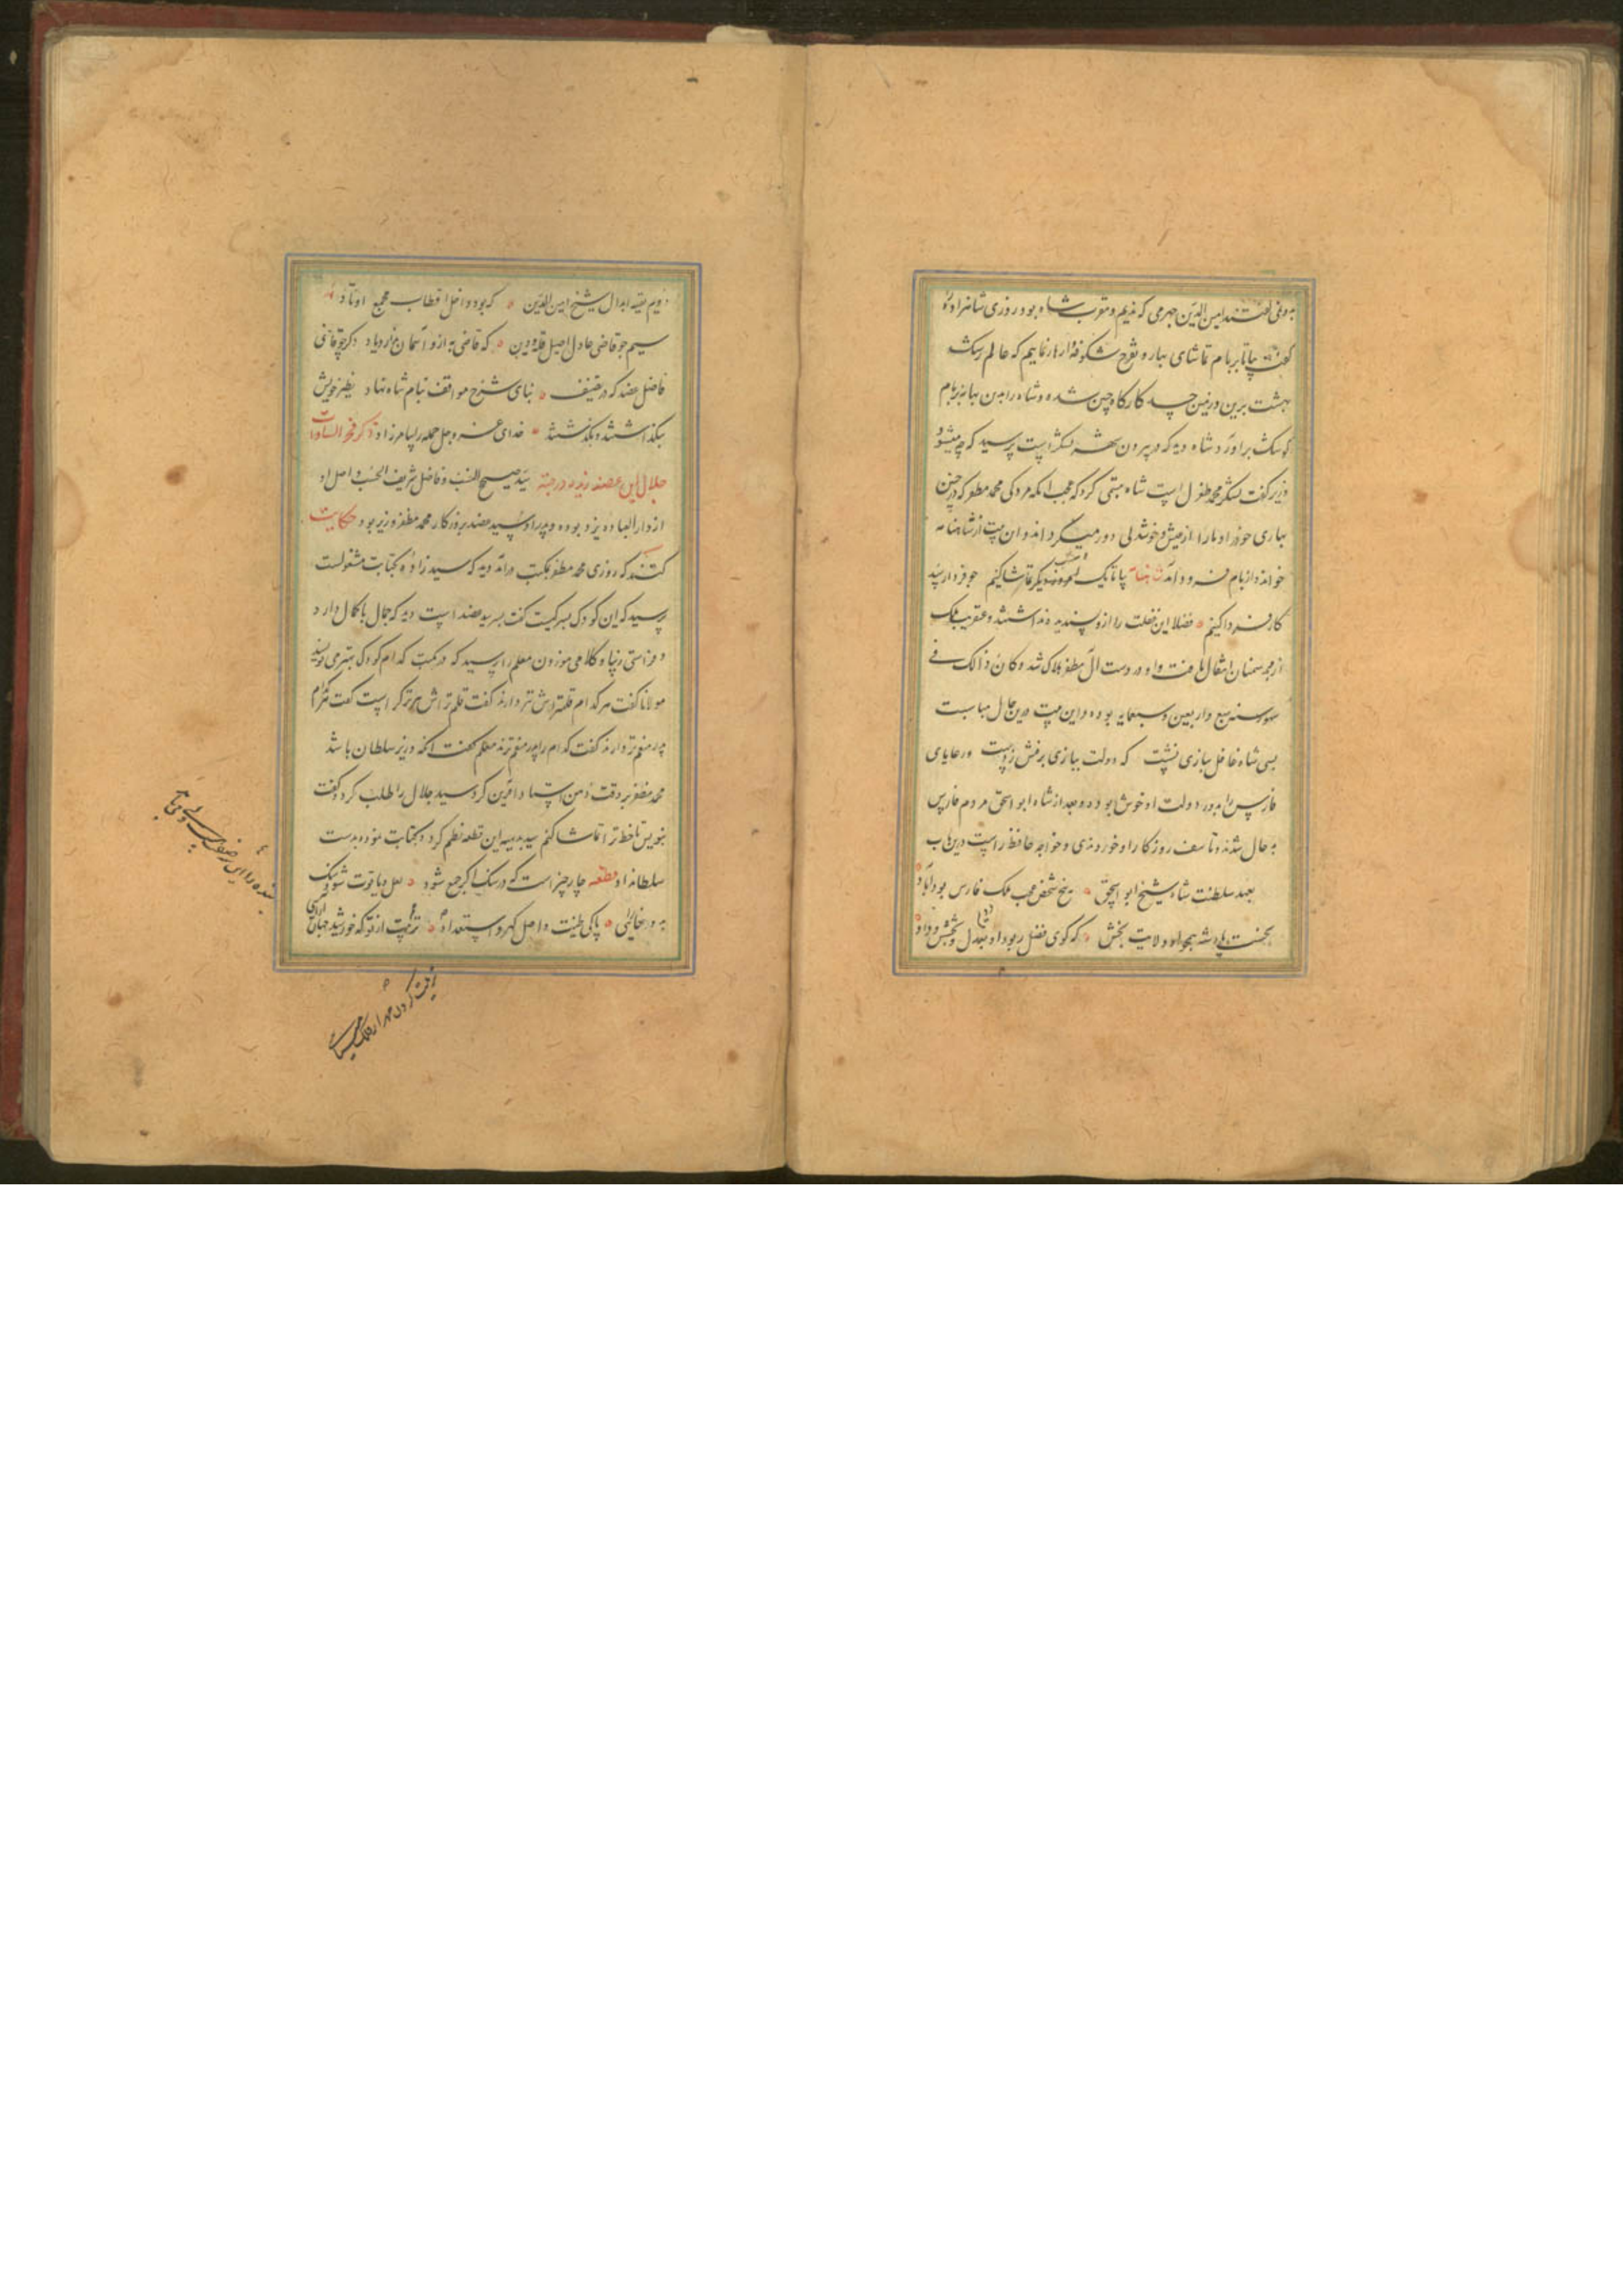 به وفی گفتند امین الدین جهرمی که ندیم و مقرب شاه بود روزی شاه را
گفت بیا تا بر بام تماشای بهار و تفرج شکوفه زارها نماییم که عالم رشک
بهشت برین و زمین چند کارگاه چین شده و شاه را بدین بهانه بر بام
کوشک برآورد شاه دید که در بیرون شهر لشکر است پرسید که چه میشود
وزیر گفت لشکر محمد مظفر است شاه تبسمی کرد که عجب ابله مردکی محمد مظفر که در چنین
بهاری خود را و ما را از عیش و خوشدلی دور میگرداند و این بیت از شاهنامه
خواند و از بام فرود آمد شاهنامه بیا تا یک امشب تماشا کنیم چو فردا رسد
کار فردا کنیم فضلا این غفلت را ازو پسندیده نداشتند و عنقریب ملک
از محمد سمنان انتقال یافت و او در دست آل مظفر هلاک شد و کان ذالک فی
شهور سنه سبع و اربعین و سبعمایه بوده و این بیت درین حال مناسبت
بسی شاه غافل ببازی نشست که دولت ببازی برفتش ز دست و رعایای
فارس را بدور دولت او خوش بوده و بعد از شاه ابو اسحق مردم فارس
به حال شدند و تاسف روزگار او خوردندی و خواجه حافظ راست درین باب
بعهد سلطنت شاه شیخ ابو اسحق پنج شخص عجب ملک فارس بود آباد
نخست پادشه همچو او ولایت بخش که گوی فضل ربود او بعدل و بخشش و داد
دویم بقیه ابدال شیخ امین الدین که بود داخل اقطاب مجمع اوتاد
سیم چو قاضی عادل اصیل ملة و دین که قاضی به ازو آسمان ندارد یاد دگر چو قاضی
فاضل عضد که در تصنیف بنای شرح مواقف بنام شاه نهاد نظیر خویش
بنگذاشتند و بگذشتند خدای عز و جل جمله را بیامرزاد ذکر فخر السادات
جلال ابن عضد زیدت درجته سید صحیح النسب و فاضل شریف الحسب و اصل او
از دار العباده یزد بوده و پدر او سید عضد بروزگار محمد مظفر وزیر بود حکایت
گفتند که روزی محمد مظفر بمکتب درآمد دید که سید زاده بکتابت مشغولست
پرسید که این کودک پسر کیست گفت پسر سید عضد است دید که جمال با کمال دارد
و فراستی زیبا و کلامی موزون معلم را پرسید که در مکتب کدام کودک بهتر می نویسد
مولانا گفت هر کدام قلمتراش تیزتر دارند گفت قلم تراش تیزتر کراست گفت هر کدام
پدر منعم تر دارند گفت کدام را پدر منعم ترند معلم گفت آنکه وزیر سلطان باشد
محمد مظفر بر دقت ذهن استاد آفرین کرد سید جلال را طلب کرد و گفت
بنویس تا خط ترا تماشا کنم سید بدیهه این قطعه نظم کرد و کتابت نموده بدست
سلطان داد قطعه چار چیز است که در سنگ اگر جمع شود لعل و یاقوت شود سنگ
بدان خارایی پاکی طینت و اصل گهر و استعداد تربیت از تو که خورشید جهان آرایی
تربیت کردن مهر از فلک مینایی